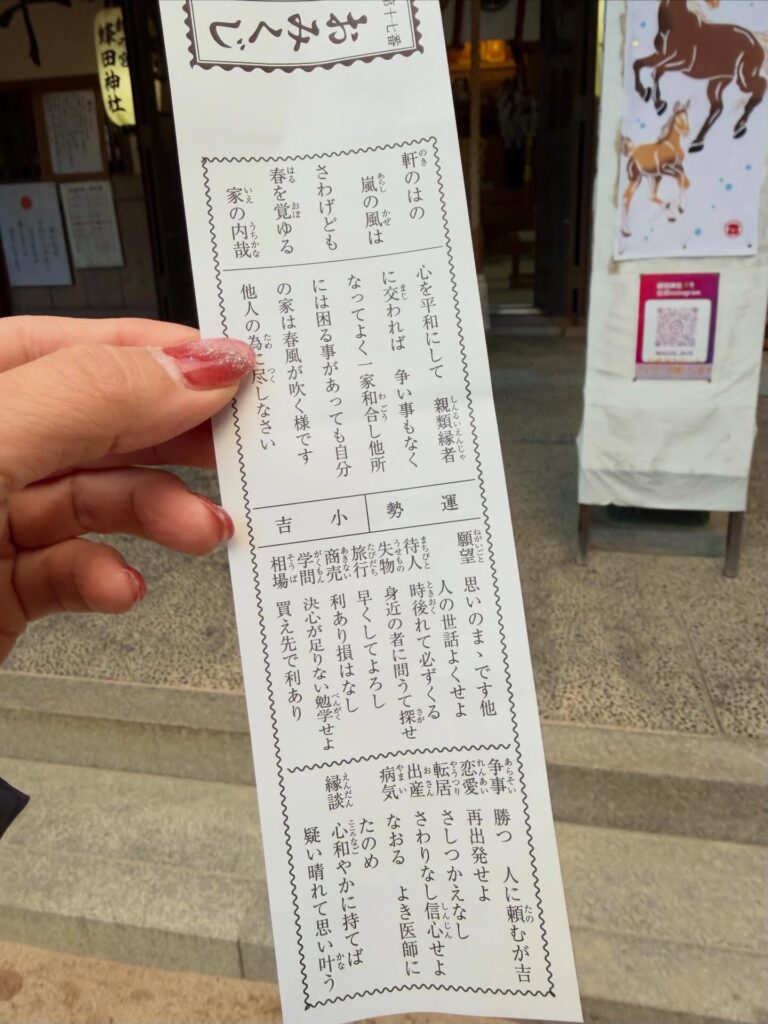 第十七番
おみくじ
軒のはの
嵐の風は
さわげども
春を覚ゆる
家の内哉
心を平和にして 親類縁者
に交われば 争い事もなく
なってよく一家和合し他所
には困る事があっても自分
の家は春風が吹く様です
他人の為に尽しなさい
運勢 小吉
願望 思いのまゝです他
人の世話よくせよ
待人 時後れて必ずくる
失物 身近の者に問うて探せ
旅行 早くしてよろし
商売 利あり損はなし
学問 決心が足りない勉学せよ
相場 買え先で利あり
争事 勝つ 人に頼むが吉
恋愛 再出発せよ
転居 さしつかえなし
出産 さわりなし信心せよ
病気 なおる よき医師に
たのめ
縁談 心和やかに持てば
疑い晴れて思い叶う
田神社